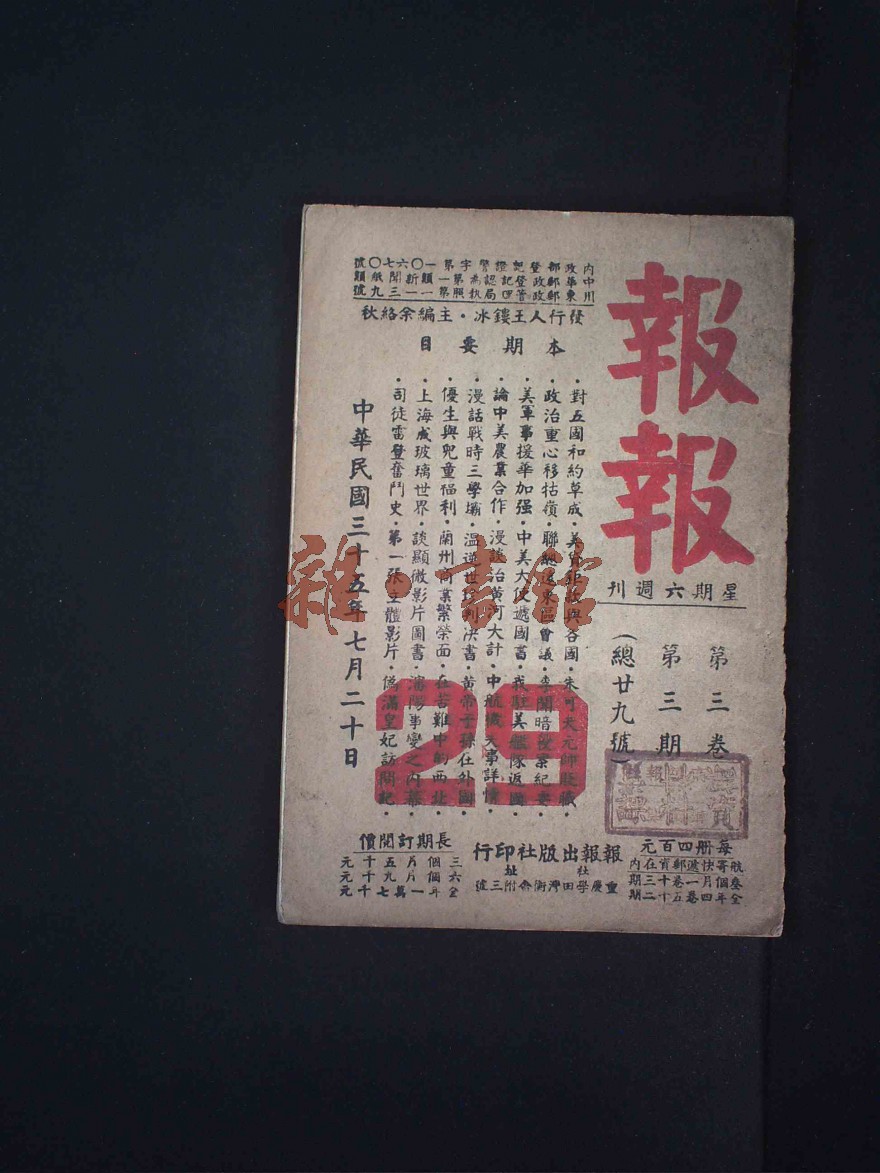 報報
星期六週刊
第三卷
第三期
(總廿九號)
每册四百元
航寄快遞郵資在內
叁個月一卷十三期
全年四卷五十二期
內政部登記證警字第一〇六七〇號
中華郵政登記認為第一類新聞紙類
東川郵政管
發行人王鏤冰・主編余絡秋
本期要目
・對五國和約草成・美
與各國・朱可夫元帥貶職・
・政治重心移牯嶺・聯
遠東區會議・李聞暗殺案紀要・
・美軍事援華加强・中美大使遞國書・我駐美艦隊返國・
・論中美農業合作・漫談治黃河大計・中航機失事詳情・
・漫話戰時三學壩・溫逆世珍判決書・黃帝子孫在外國・
・優生與兒童福利・蘭州商業繁榮面・在苦難中的西北・
・上海成玻璃世界・談顯微影片圖書・瀋陽事變之內幕・
・司徒雷登奮鬥史・第一張立體影片・偽滿皇妃訪問記・
29
中華民國三十五年七月二十日
報報出版社印行
社址
重慶學田灣衡舍附三號
長期訂閱價
三個月五千元
六個月九千元
全年一萬七千元
雜・書館